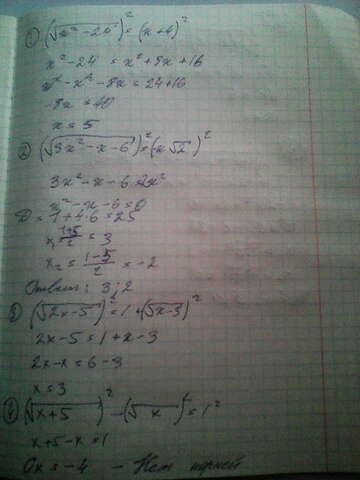 1) (√x²-24)² = (x+4)²
x²-24 = x²+8x+16
x²-x²-8x = 24+16
-8x = 40
x = 5
2) (√3x²-x-6)² = (x√2)²
3x²-x-6=2x²
x²-x-6=0
D = 1+4·6=25
x₁ (1+5)/2 = 3
x₂ = (1-5)/2 = -2
Ответ: 3; 2
3) (√2x-5)² = 1+(√x-3)²
2x-5 = 1+x-3
2x-x = 6-3
x = 3
4) (√x+5)² - (√x)² = 1²
x+5-x=1
0x = -4 - Нет корней